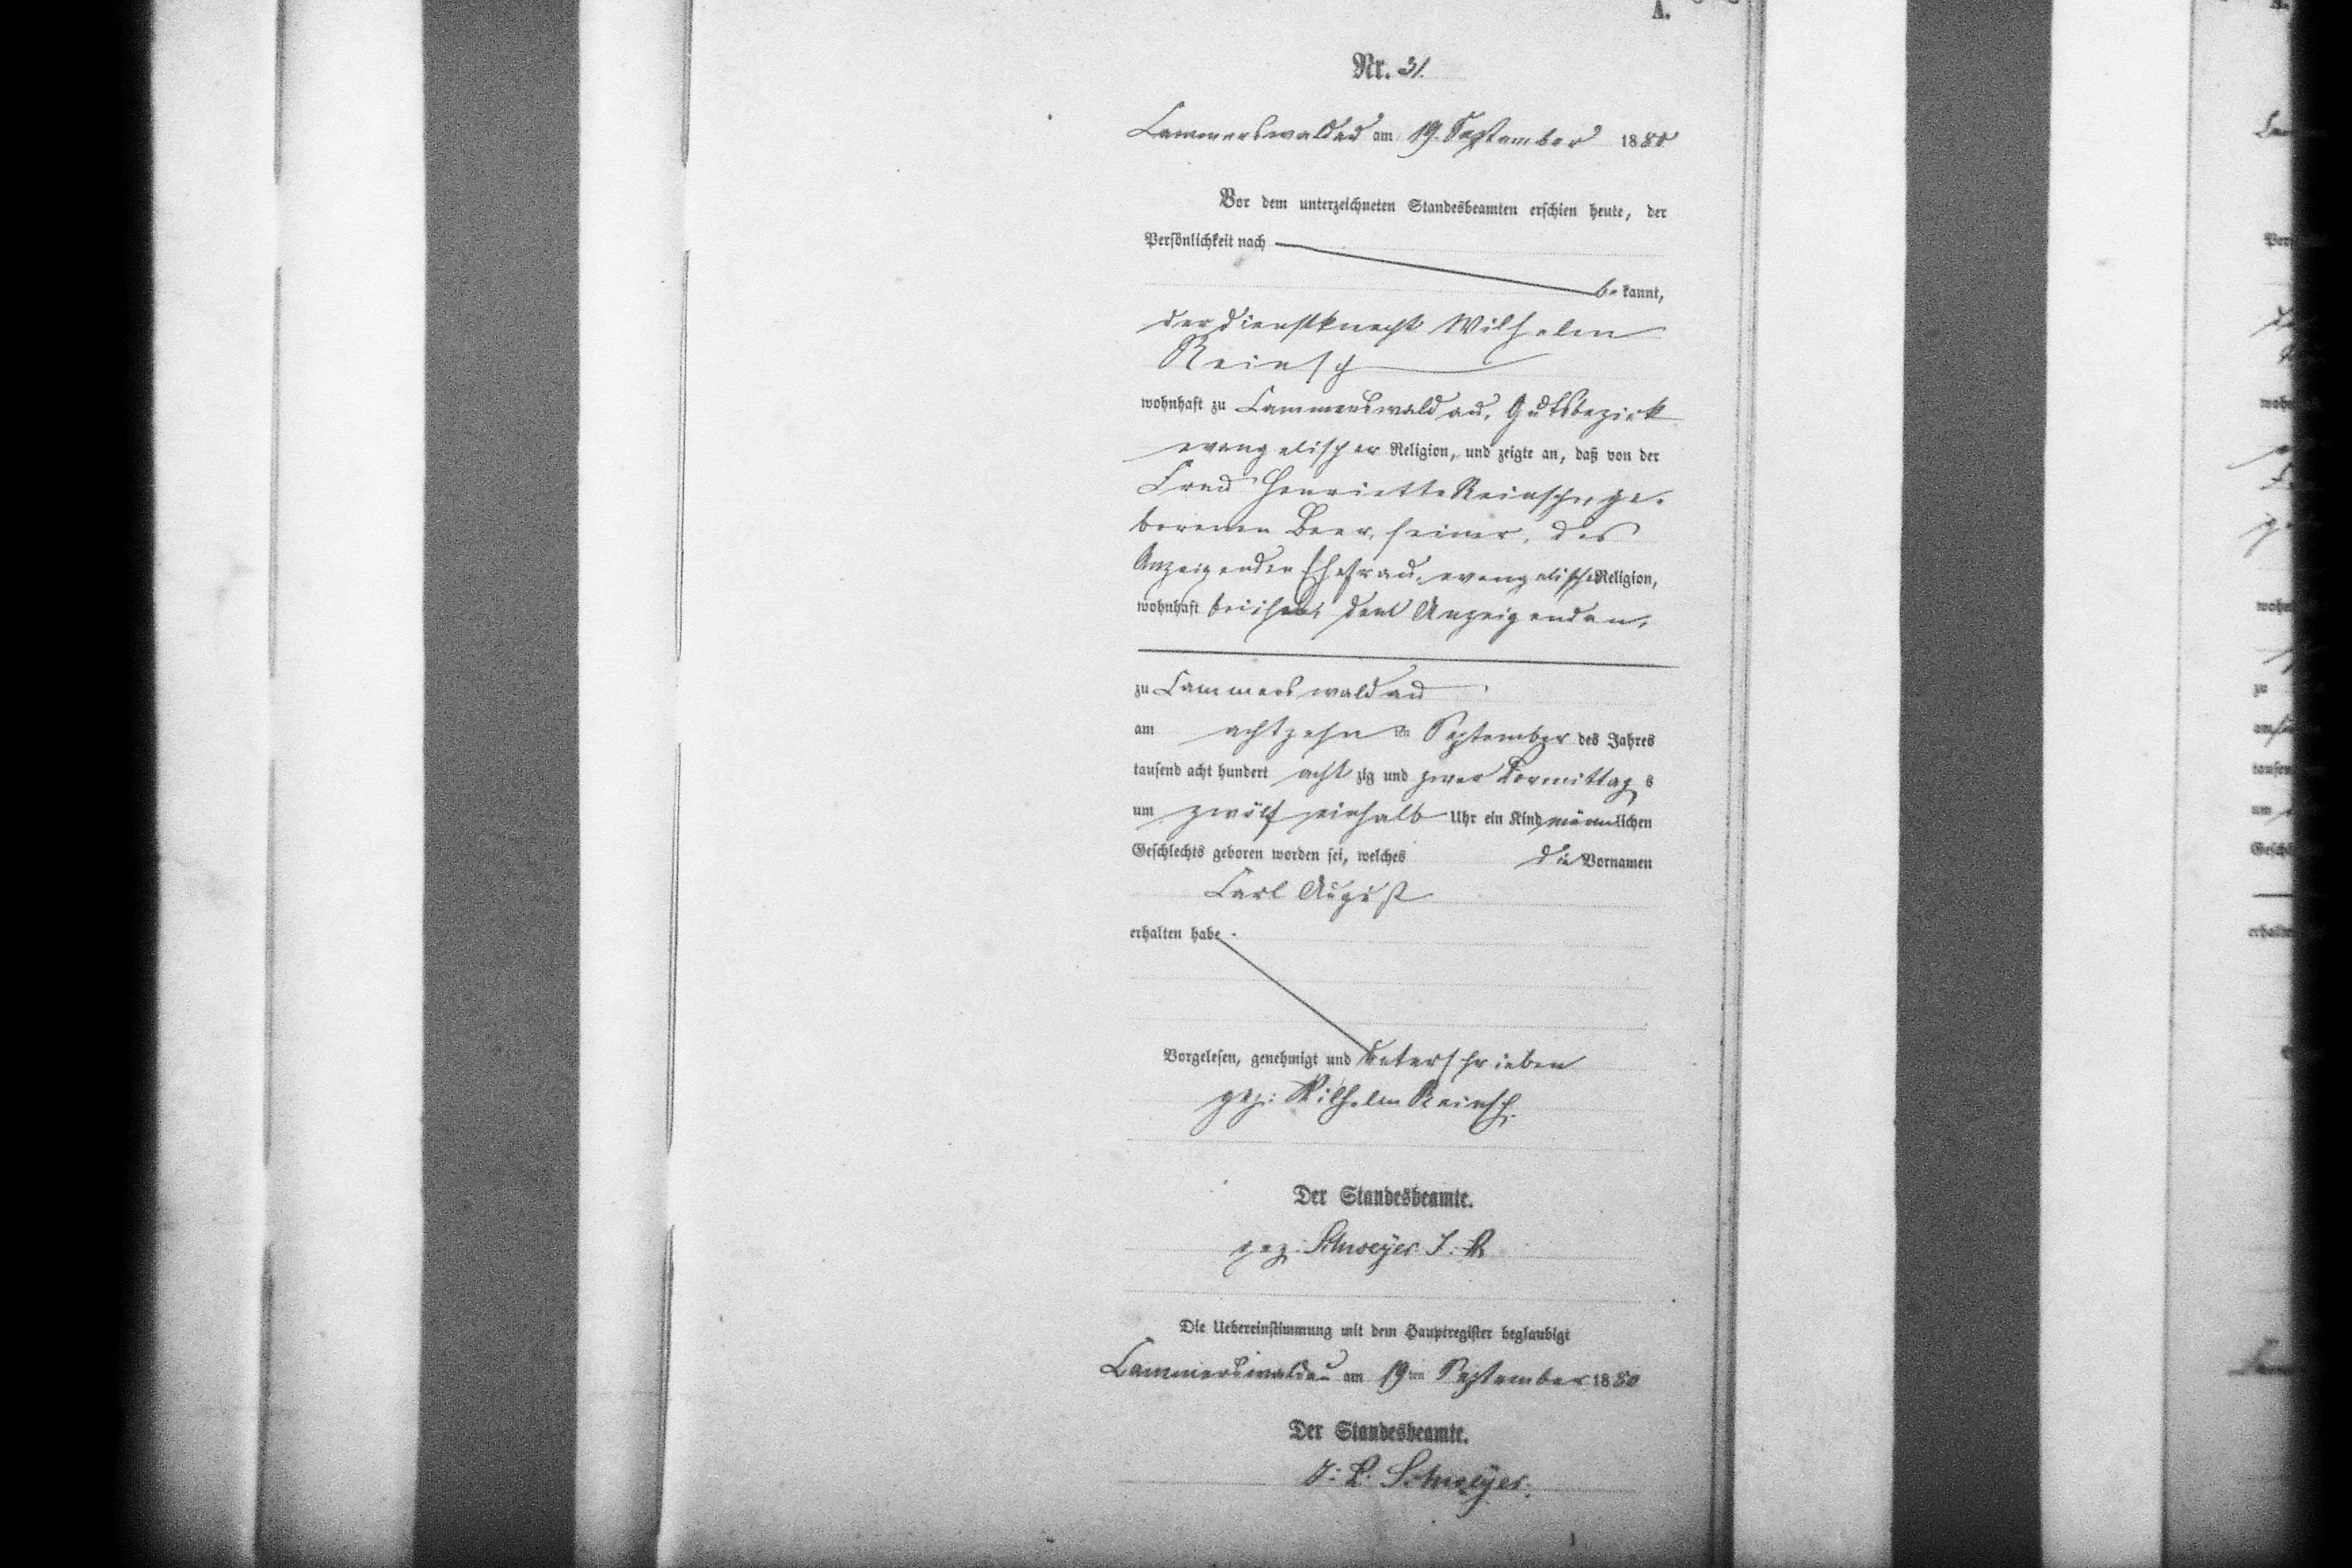 A.
Nr. 31.
Cammerswaldau am 19. September 1880
Vor dem unterzeichneten Standesbeamten erschien heute, der
Persönlichkeit nach
be kannt,
der Dienstknecht Wilhelm
Reinsch
wohnhaft zu Cammerswaldau, Gutsbezirk
evangelischer Religion, und zeigte an, daß von der
Frau Henriette Reinsch, ge-
borenen Beer, seiner, des
Anzeigenden Ehefrau, evangelischer Religion,
wohnhaft bei dem Anzeigenden,
zu Cammerswaldau
am achtzehn ten September des Jahres
tausend acht hundert acht zig und zwar Vormittag s
um zwölf einhalb Uhr ein Kind männlichen
Geschlechts geboren worden sei, welches die Vornamen
Carl August
erhalten habe.
Vorgelesen, genehmigt und unterschrieben
gez: Wilhelm Reinsch.
Der Standesbeamte.
gez: Schweÿer
Die Uebereinstimmung mit dem Hauptregister beglaubigt
Cammerswaldau am 19ten September 1880
Der Standesbeamte.
Schweÿer.